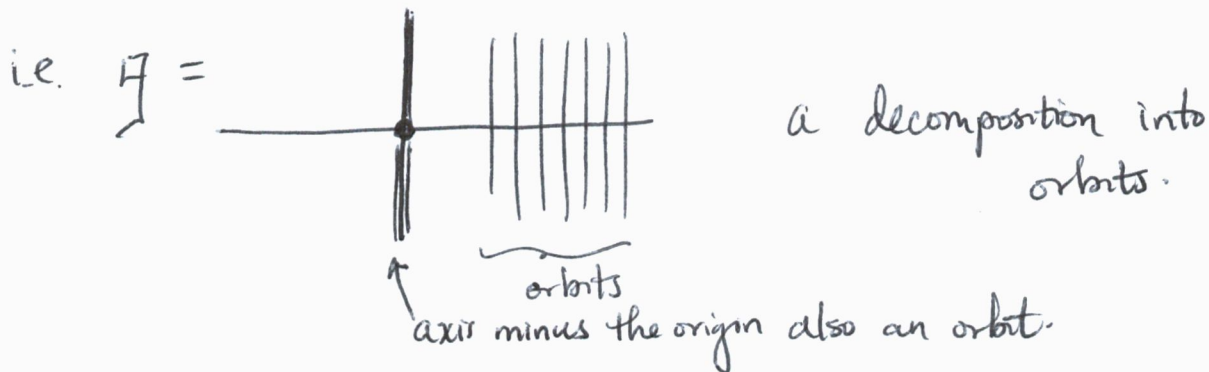 i.e. 𝔤 =
a decomposition into
orbits.
orbits
axis minus the origin also an orbit.